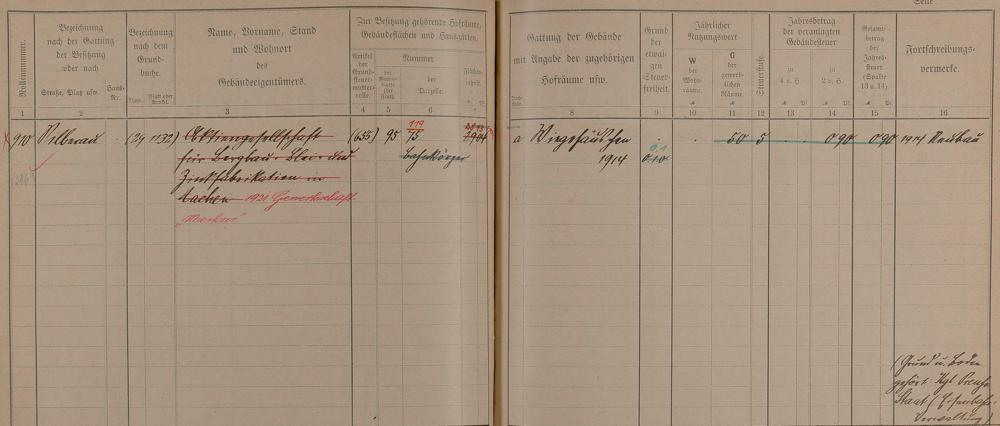 Seite
Rollennummer.
Bezeichnung
nach der Gattung
der Besitzung
oder nach
Straße, Platz usw.
Haus-
Nr.
Bezeichnung
nach dem
Grund-
buche.
Band.
Blatt oder
Artikel.
Name, Vorname, Stand
und Wohnort
des
Gebäudeeigentümers.
Zur Besitzung gehörende Hofräume,
Gebäudeflächen und Hausgärten.
Artikel
der
Grund-
steuer-
mutter-
rolle.
Nummer
des
Karten-
blatts
(der
Flur).
der
Parzelle.
Flächen-
inhalt.
Gattung der Gebäude
mit Angabe der zugehörigen
Hofräume usw.
Grund
der
etwai-
gen
Steuer-
freiheit.
Jährlicher
Nutzungswert
W
der
Wohn-
räume.
G
der
gewerb-
lichen
Räume.
Steuerstufe.
Jahresbetrag
der veranlagten
Gebäudesteuer
zu
4 v. H.
zu
2 v. H.
Gesamt-
betrag
der
Jahres-
steuer
(Spalte
13 u. 14).
Fortschreibungs-
vermerke.
1 2 3 4 5 6 7 8 9 10 11 12 13 14 15 16
910 Bilberau (29 1132) Aktiengesellschaft (655) 95 119 75
für Bergbau- Blei- und Bahnkörper
Zinkfabrikation in
Aachen 1921 Gewerkschaft
"Merkur"
a Wiegehäuschen . 60 5 . . 0 90 0 90 1914 Neubau
1914
(Grund u. Boden
gehört Kgl. Preuß.
Staat (Eisenbahn-
Verwaltung)